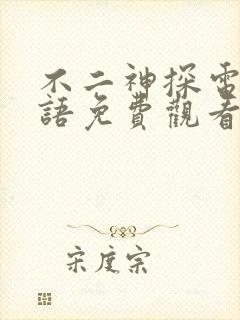 不二神探電
語免費觀看
宋度宗